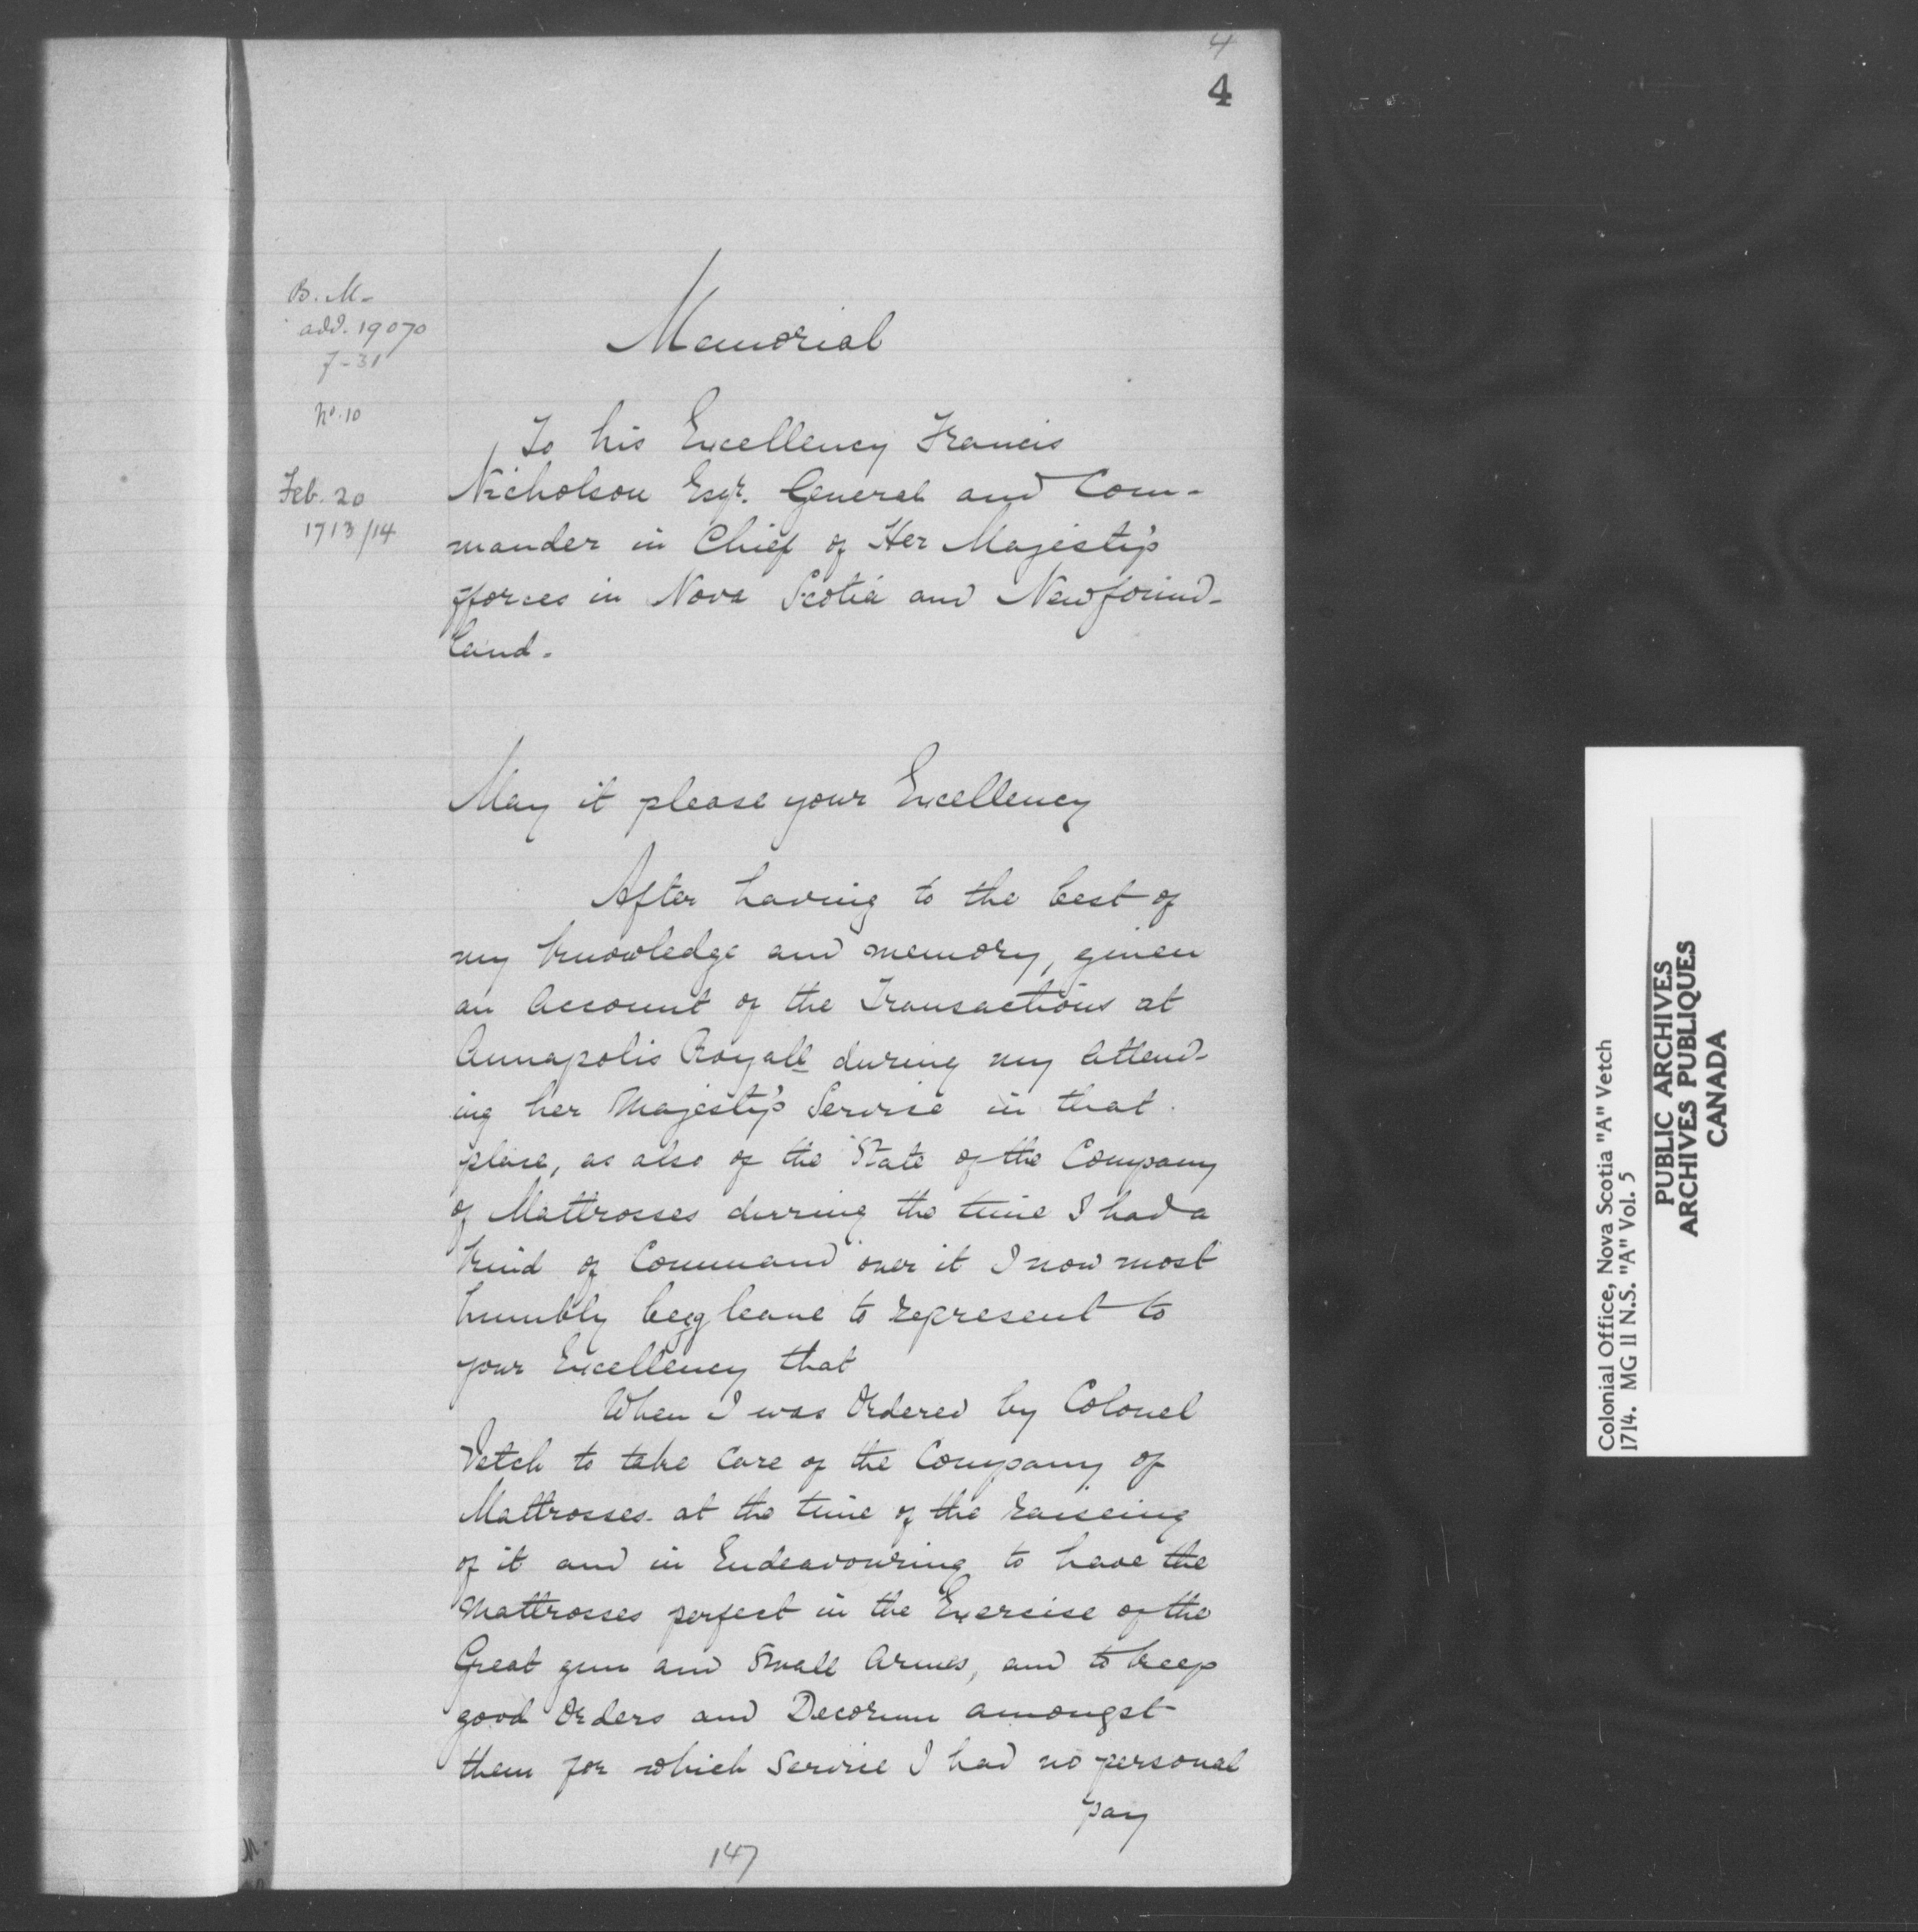 4
4
B. M.
add. 19070
f-31
No. 10
Feb. 20
1713/14
Memorial
To his Excellency Francis
Nicholson Esqr. General and Com-
mander in Chief of Her Majesty's
fforces in Nova Scotia and Newfound-
land.
May it please your Excellency
After having to the best of
my knowledge and memory, given
an Account of the Transactions at
Annapolis Royall during my Attend-
ing her Majesty's Service in that
place, as also of the State of the Company
of Mattrosses durring the time I had a
kind of Command over it I now most
humbly begg leave to represent to
your Excellency that
When I was Ordered by Colonel
Vetch to take Care of the Company of
Mattrosses at the time of the raiseing
of it and in Endeavouring to have the
Mattrosses perfect in the Exercise of the
Great gun and Small Armes, and to keep
good Orders and Decorum amongst
them for which Service I had no personal
pay
147
Colonial Office, Nova Scotia "A" Vetch
1714. MG 11 N.S. "A" Vol. 5
PUBLIC ARCHIVES
ARCHIVES PUBLIQUES
CANADA